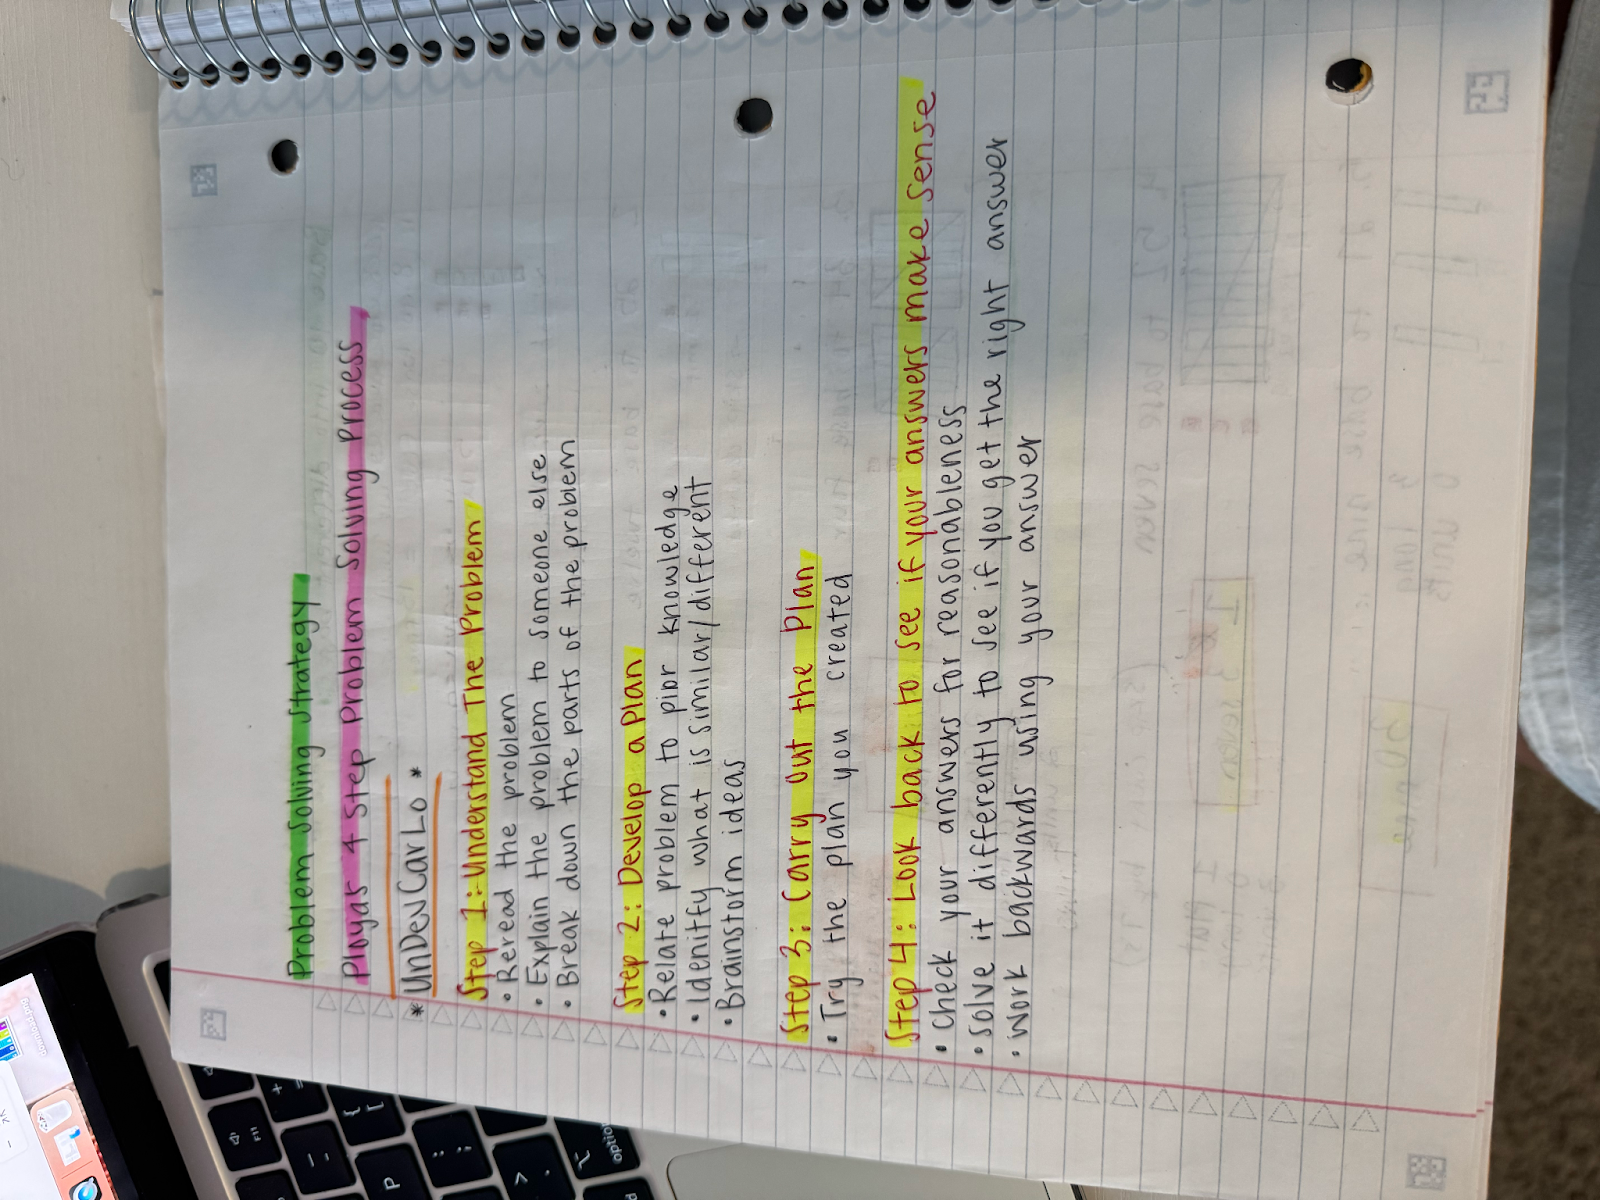 Problem Solving Strategy
Ployas 4 Step Problem Solving Process
* UnDevCarLo *
Step 1: Understand The Problem
• Reread the problem
• Explain the problem to someone else
• Break down the parts of the problem
Step 2: Develop a Plan
• Relate problem to pior knowledge
• Idenitfy what is similar/different
• Brainstorm ideas
Step 3: Carry out the Plan
• Try the plan you created
Step 4: Look back to see if your answers make sense
• Check your answers for reasonableness
• Solve it differently to see if you get the right answer
• Work backwards using your answer
F11
P
option